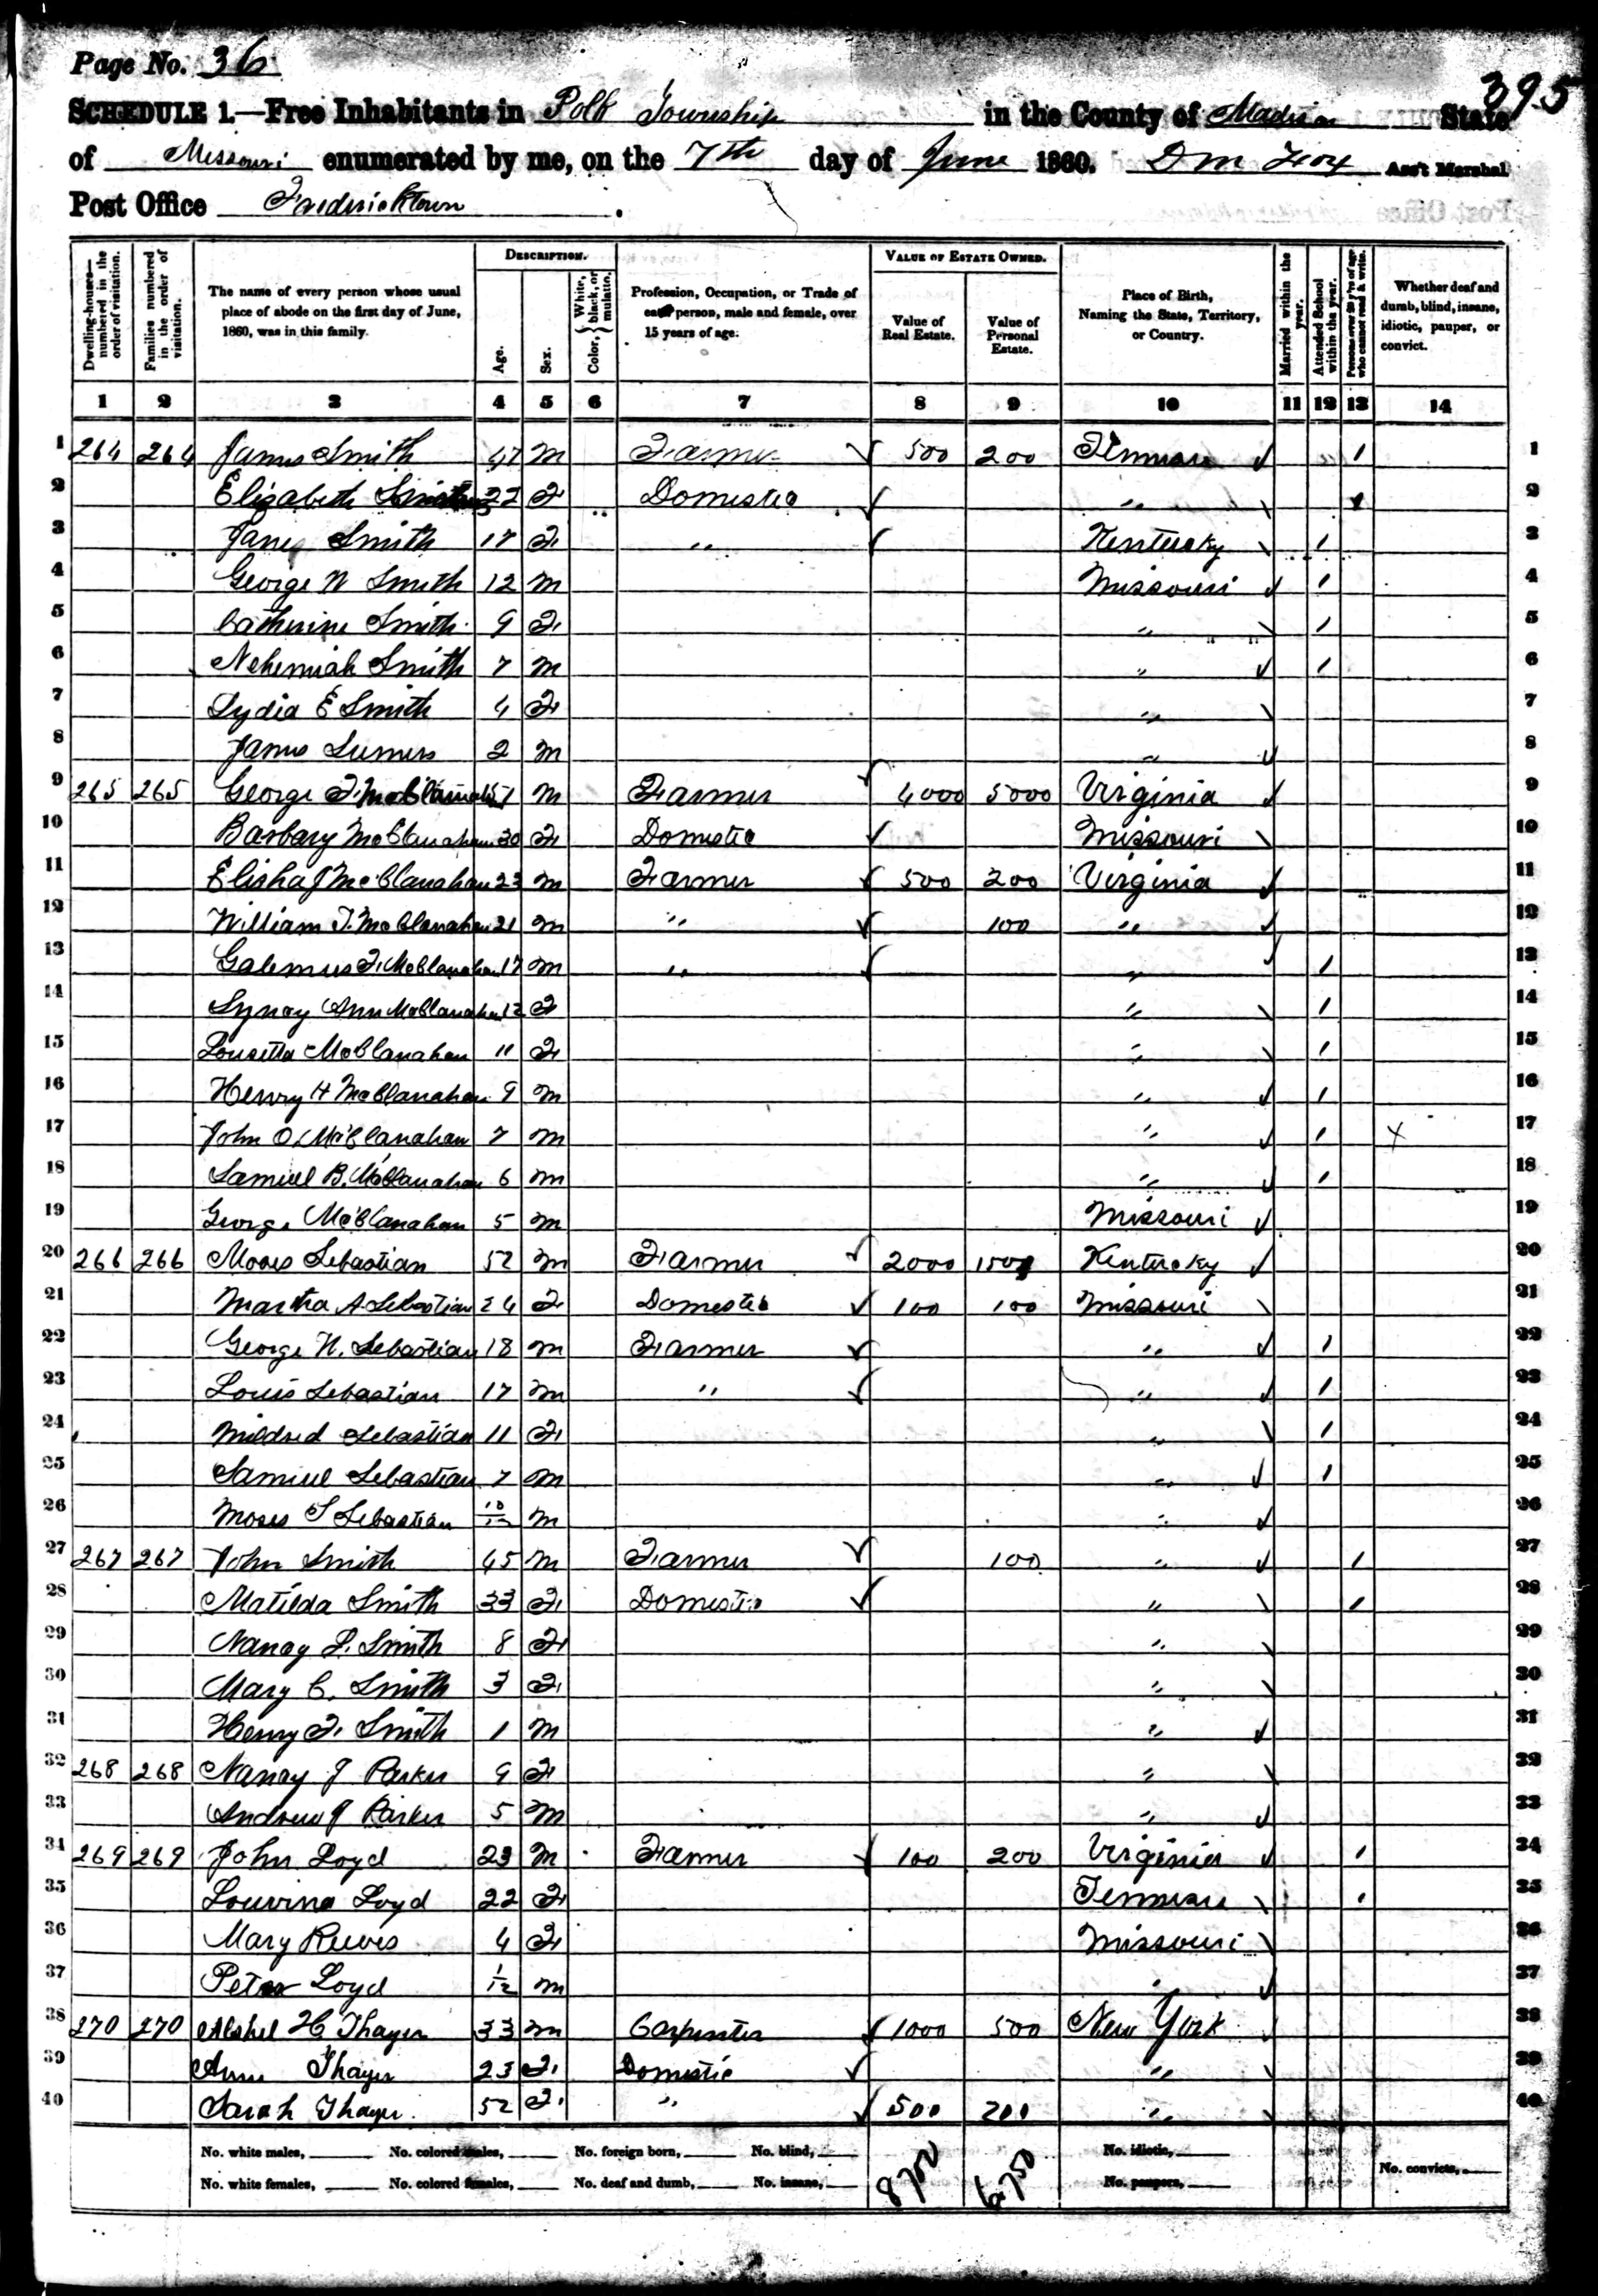 Page No. 36
395
SCHEDULE 1.—Free Inhabitants in Polk Township in the County of Madison State
of Missouri enumerated by me, on the 7th day of June 1860. D M Fox Ass't Marshal
Post Office Fredericktown.
Dwelling-houses—numbered in the order of visitation.
Families numbered in the order of visitation.
The name of every person whose usual place of abode on the first day of June, 1860, was in this family.
DESCRIPTION.
Age.
Sex.
Color, White, black, or mulatto.
Profession, Occupation, or Trade of each person, male and female, over 15 years of age.
VALUE OF ESTATE OWNED.
Value of Real Estate.
Value of Personal Estate.
Place of Birth, Naming the State, Territory, or Country.
Married within the year.
Attended School within the year.
Persons over 20 y'rs of age who cannot read & write.
Whether deaf and dumb, blind, insane, idiotic, pauper, or convict.
1 2 3 4 5 6 7 8 9 10 11 12 13 14
1 264 264 James Smith 47 m Farmer 500 200 Tennessee / 1
2 Elizabeth Smith F Domestic " 2
3 Jane Smith 17 F " Kentucky / 3
4 George W Smith 12 m Missouri / 4
5 Catherine Smith 9 F " / 5
6 Nehemiah Smith 7 m " / 6
7 Lydia E Smith 4 F " 7
8 James Sumers 2 m " 8
9 265 265 George F. McClanahan 51 m Farmer 4000 5000 Virginia 9
10 Barbary McClanahan 30 F Domestic Missouri 10
11 Elisha J McClanahan 23 m Farmer 500 200 Virginia 11
12 William T. McClanahan 21 m " 100 " 12
13 Galemus F. McClanahan 17 m " " / 13
14 Ann McClanahan 12 F " / 14
15 Lousetta McClanahan 11 F " / 15
16 Henry H McClanahan 9 m " / 16
17 John O. McClanahan 7 m " / x 17
18 Samuel B. McClanahan 6 m " / 18
19 George McClanahan 5 m Missouri 19
20 266 266 Moses Sebastian 52 m Farmer 2000 1500 Kentucky 20
21 Martha A Sebastian 24 F Domestic 100 100 Missouri 21
22 George N. Sebastian 18 m Farmer " / 22
23 Louis Sebastian 17 m " " / 23
24 Mildred Sebastian 11 F " / 24
25 Samuel Sebastian 7 m " / 25
26 Moses S Sebastian 10/12 m " 26
27 267 267 John Smith 45 m Farmer 100 " / 27
28 Matilda Smith 33 F Domestic " / 28
29 Nancy L. Smith 8 F " 29
30 Mary C. Smith 3 F " 30
31 Henry F. Smith 1 m " 31
32 268 268 Nancy J Parker 9 F " 32
33 Andrew J Parker 5 m " 33
34 269 269 John Loyd 23 m Farmer 100 200 Virginia / 34
35 Louvina Loyd 22 F Tennessee / 35
36 Mary Reeves 4 F Missouri 36
37 Peter Loyd 1/12 m " 37
38 270 270 H Thayer 33 m Carpenter 1000 500 New York 38
39 Ann Thayer 23 F Domestic " 39
40 Sarah Thayer 52 F " 500 200 " 40
No. white males, No. colored males, No. foreign born, No. blind, 8700 6750 No. idiotic,
No. white females, No. colored females, No. deaf and dumb, No. insane, No. paupers, No. convicts,